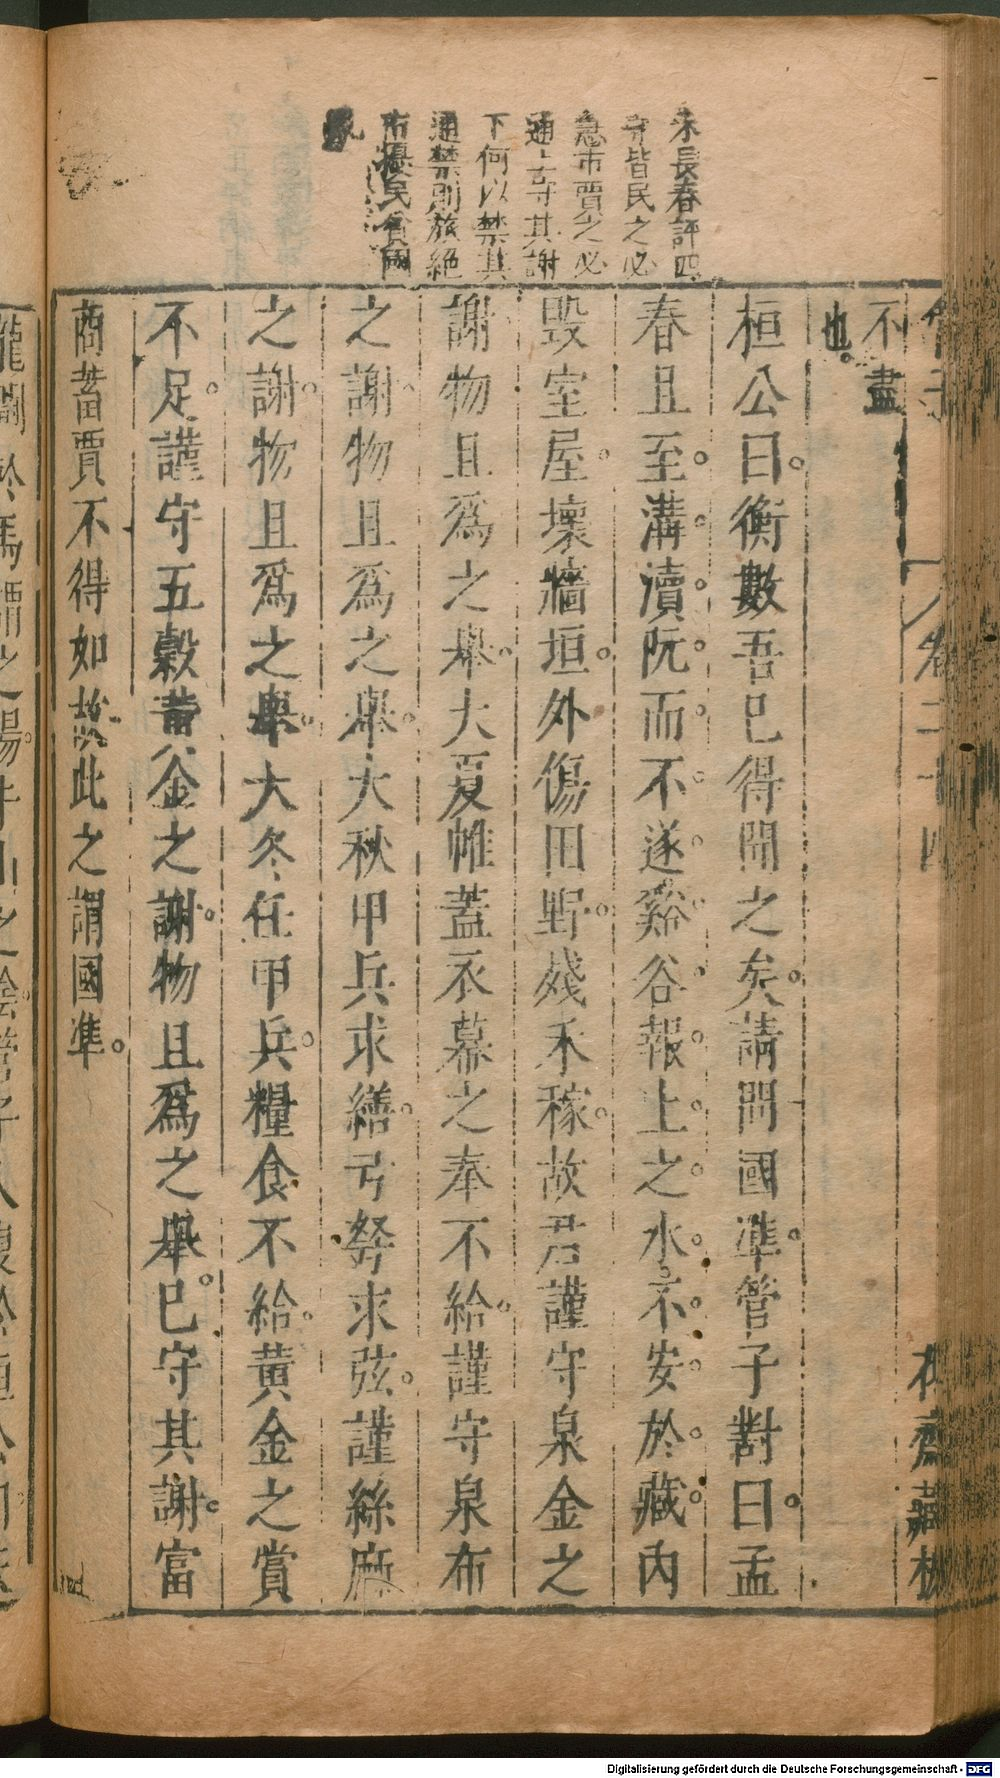 朱長春評四
守皆民之必
急市賈之必
通上守其謝
下何以禁其
通禁則旅絕
市擾民貧國
不盡
也
桓公曰衡數吾已得聞之矣請問國準管子對曰孟
春且至溝瀆阮而不遂谿谷報上之水不安於藏內
毀室屋壞牆垣外傷田野殘禾稼故君謹守泉金之
謝物且爲之舉大夏帷蓋衣幕之奉不給謹守泉布
之謝物且爲之舉大秋甲兵求繕弓弩求弦謹絲麻
之謝物且爲之舉大冬任甲兵糧食不給黃金之賞
不足謹守五穀黃金之謝物且爲之舉已守其謝富
商蓄賈不得如故此之謂國準
龍鬬於馬謂之陽牛山之陰管子入復於桓公曰
Digitalisierung gefördert durch die Deutsche Forschungsgemeinschaft - DFG